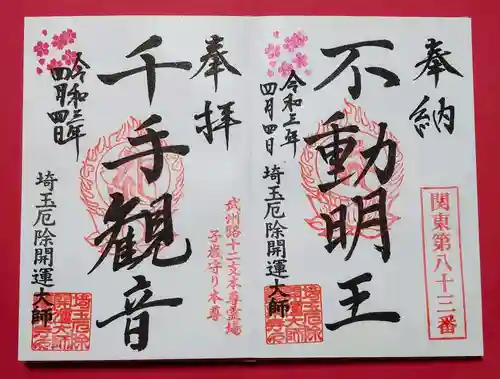 奉納
関東第八十三番
不動明王
令和三年
四月四日
埼玉厄除開運大師
奉拝
武州路十二支本尊霊場
子歳守り本尊
千手観音
令和三年
四月四日
埼玉厄除開運大師